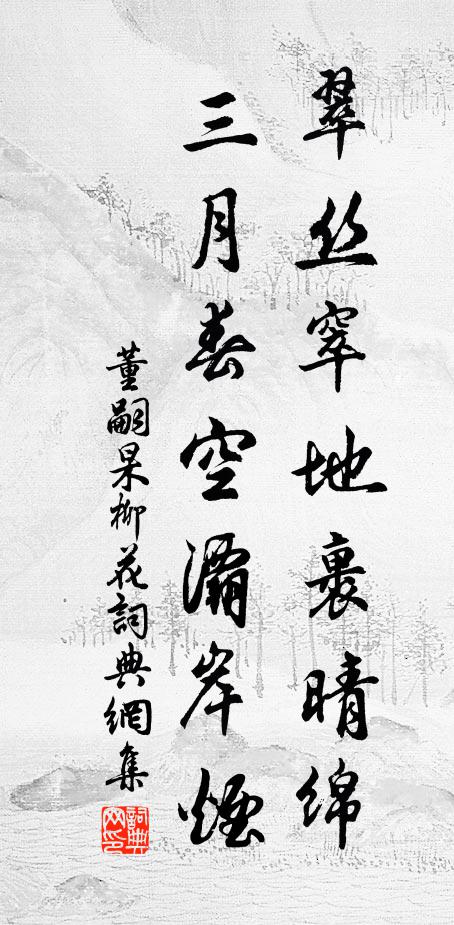 翠丝窣地裹晴绵
三月春空灞岸烟
董嗣杲柳花詞典網集
詞典网印